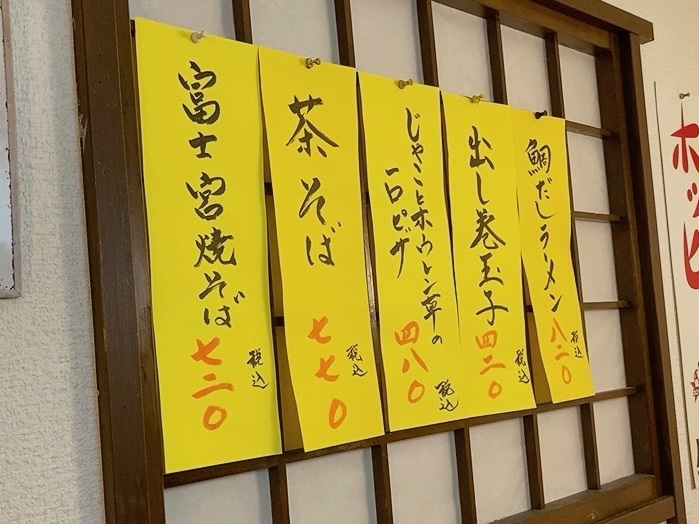 鯛だしラーメン
税込
八二〇
出し巻玉子
税込
四二〇
じゃことホウレン草の
一口ピザ
税込
四八〇
茶そば
税込
七七〇
富士宮焼そば
税込
七二〇
ホッピ